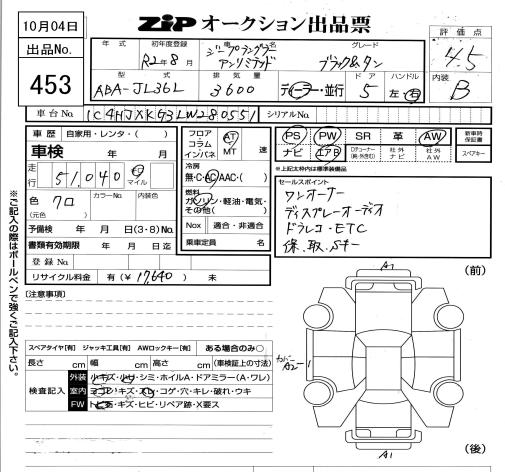 10月04日
ZiP オークション出品票
評価点
4.5
出品No.
453
年式
初年度登録
R2年8月
ジープラングラー
アンリミテッド
グレード
ブラック&タン
型式
ABA-JL36L
排気量
3600
ディーラー・並行
ドア
5
ハンドル
左・右
内装
B
車台No.
1C4HJXKG3LW280551
シリアルNo.
車歴 自家用・レンタ・( )
車検 年 月
走行 51,040 km マイル
色 クロ
(元色)
カラーNo.
内装色
予備検 年 月 日(3・8)No.
書類有効期限 年 月 日迄
登録No.
リサイクル料金 有(¥17,640) 未
フロア
コラム
インパネ
AT
MT
速
冷房
無・C・AC/AAC・( )
燃料
ガソリン・軽油・電気・
その他( )
Nox 適合・非適合
乗車定員 名
PS PW SR 革 AW
ナビ エアB 社外ナビ 社外AW
新車時保証書
スペアキー
※上記太枠内は標準装備
セールスポイント
ワンオーナー
ディスプレーオーディオ
ドラレコ・ETC
保、取、Sキー
※ご記入の際はボールペンで強くご記入下さい。
[注意事項]
スペアタイヤ[有] ジャッキ工具[有] AWロックキー[有] ある場合のみ○
長さ cm 幅 cm 高さ cm (車検証上の寸法)
検査記入
外装 小キズ・小U・シミ・ホイルA・ドアミラー(A・ワレ)
室内 ヨゴレ・キズ・スレ・コゲ・穴・キレ・破れ・ウキ
FW トビ石・キズ・ヒビ・リペア跡・X要ス
(前)
A1
カバー
A2
1
A1
(後)